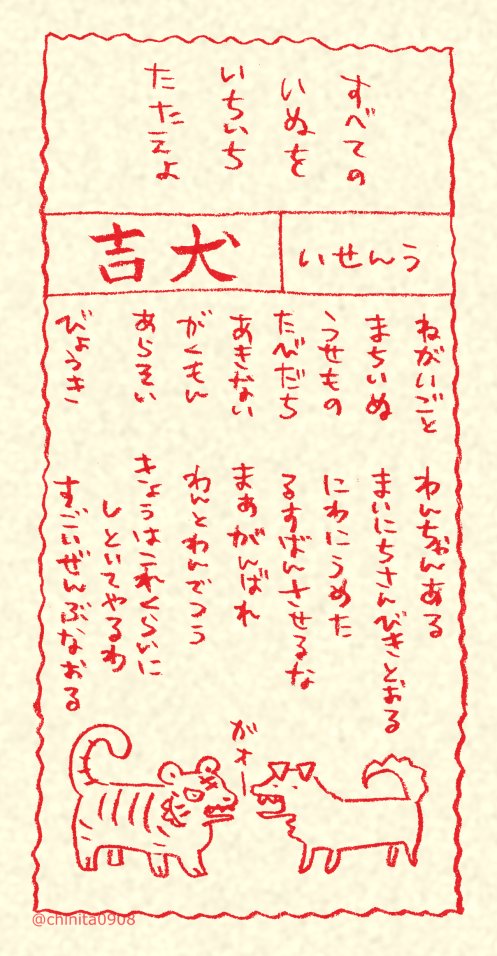 すべての
いぬを
いちいち
たたえよ
うんせい
犬吉
ねがいごと わんちゃんある
まちいぬ まいにちさんびきとおる
うせもの にわにうめた
たびだち るすばんさせるな
あきない まあがんばれ
がくもん わんとわんでつう
あらそい きょうはこれくらいに
しといてやるわ
びょうき すごいぜんぶなおる
がオー
@chinita0908